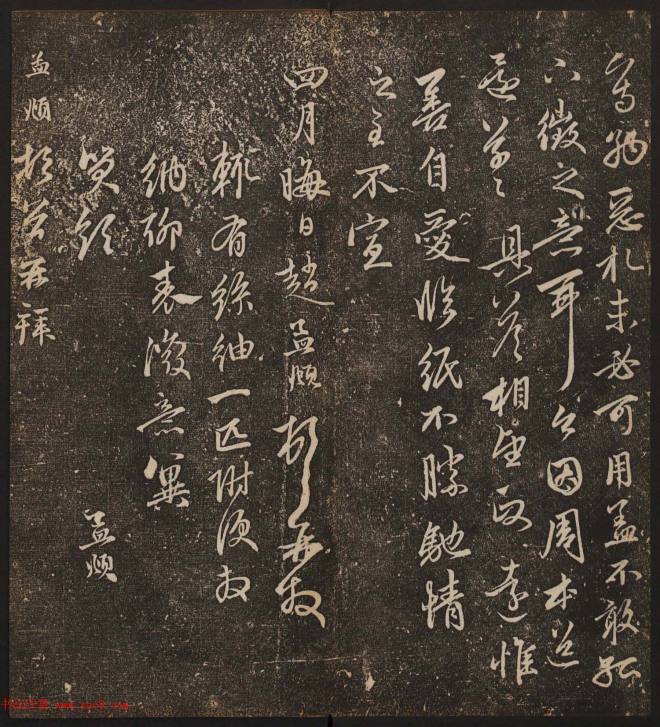 惡札未必可用盖不敢孤
下徵之意耳今因周本道
還草草具答相望更遠惟
善自愛臨紙不勝馳情
之至不宣
四月晦日趙孟頫頓首再拜
輒有絲紬一匹附便
納聊表微意冀
笑領 孟頫
孟頫頓首再拜